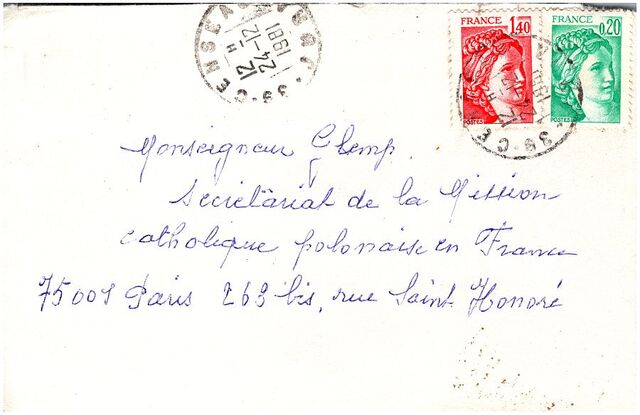 FRANCE 1,40
FRANCE 0,20
POSTES
POSTES
24-12
1981
12 H
Monseigneur Glemp
Secrétariat de la Mission
catholique polonaise en France
75001 Paris 263 bis, rue Saint Honoré